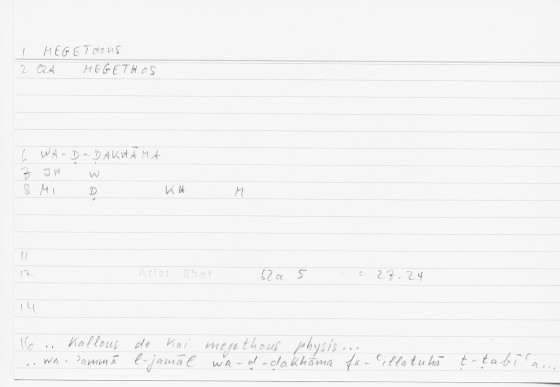 1 MEGETHOUS
2 QA MEGETHOS
6 WA-Ḍ-ḌAKHĀMA
7 JP W
8 MI Ḍ KH M
11
12 Arist Rhet 62a 5 : 27.24
14
16 .. Kallous de kai megethous physis...
.. wa-ʾammā l-jamāl wa-ḍ-ḍakhāma fa-ʿillatuhā ṭ-ṭabīʿa...